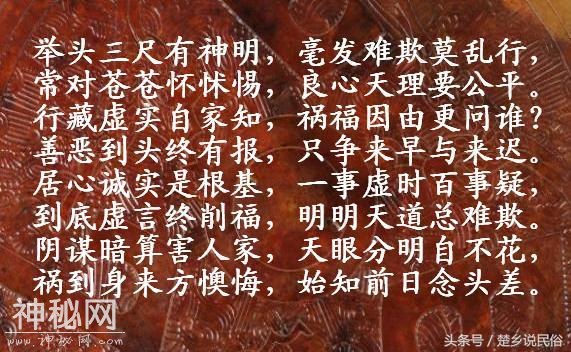 举头三尺有神明，毫发难欺莫乱行，
常对苍苍怀怵惕，良心天理要公平。
行藏虚实自家知，祸福因由更问谁？
善恶到头终有报，只争来早与来迟。
居心诚实是根基，一事虚时百事疑，
到底虚言终削福，明明天道总难欺。
阴谋暗算害人家，天眼分明自不花，
祸到身来方懊悔，始知前日念头差。
神秘网
www.神秘网.com
头条号／楚乡说民俗